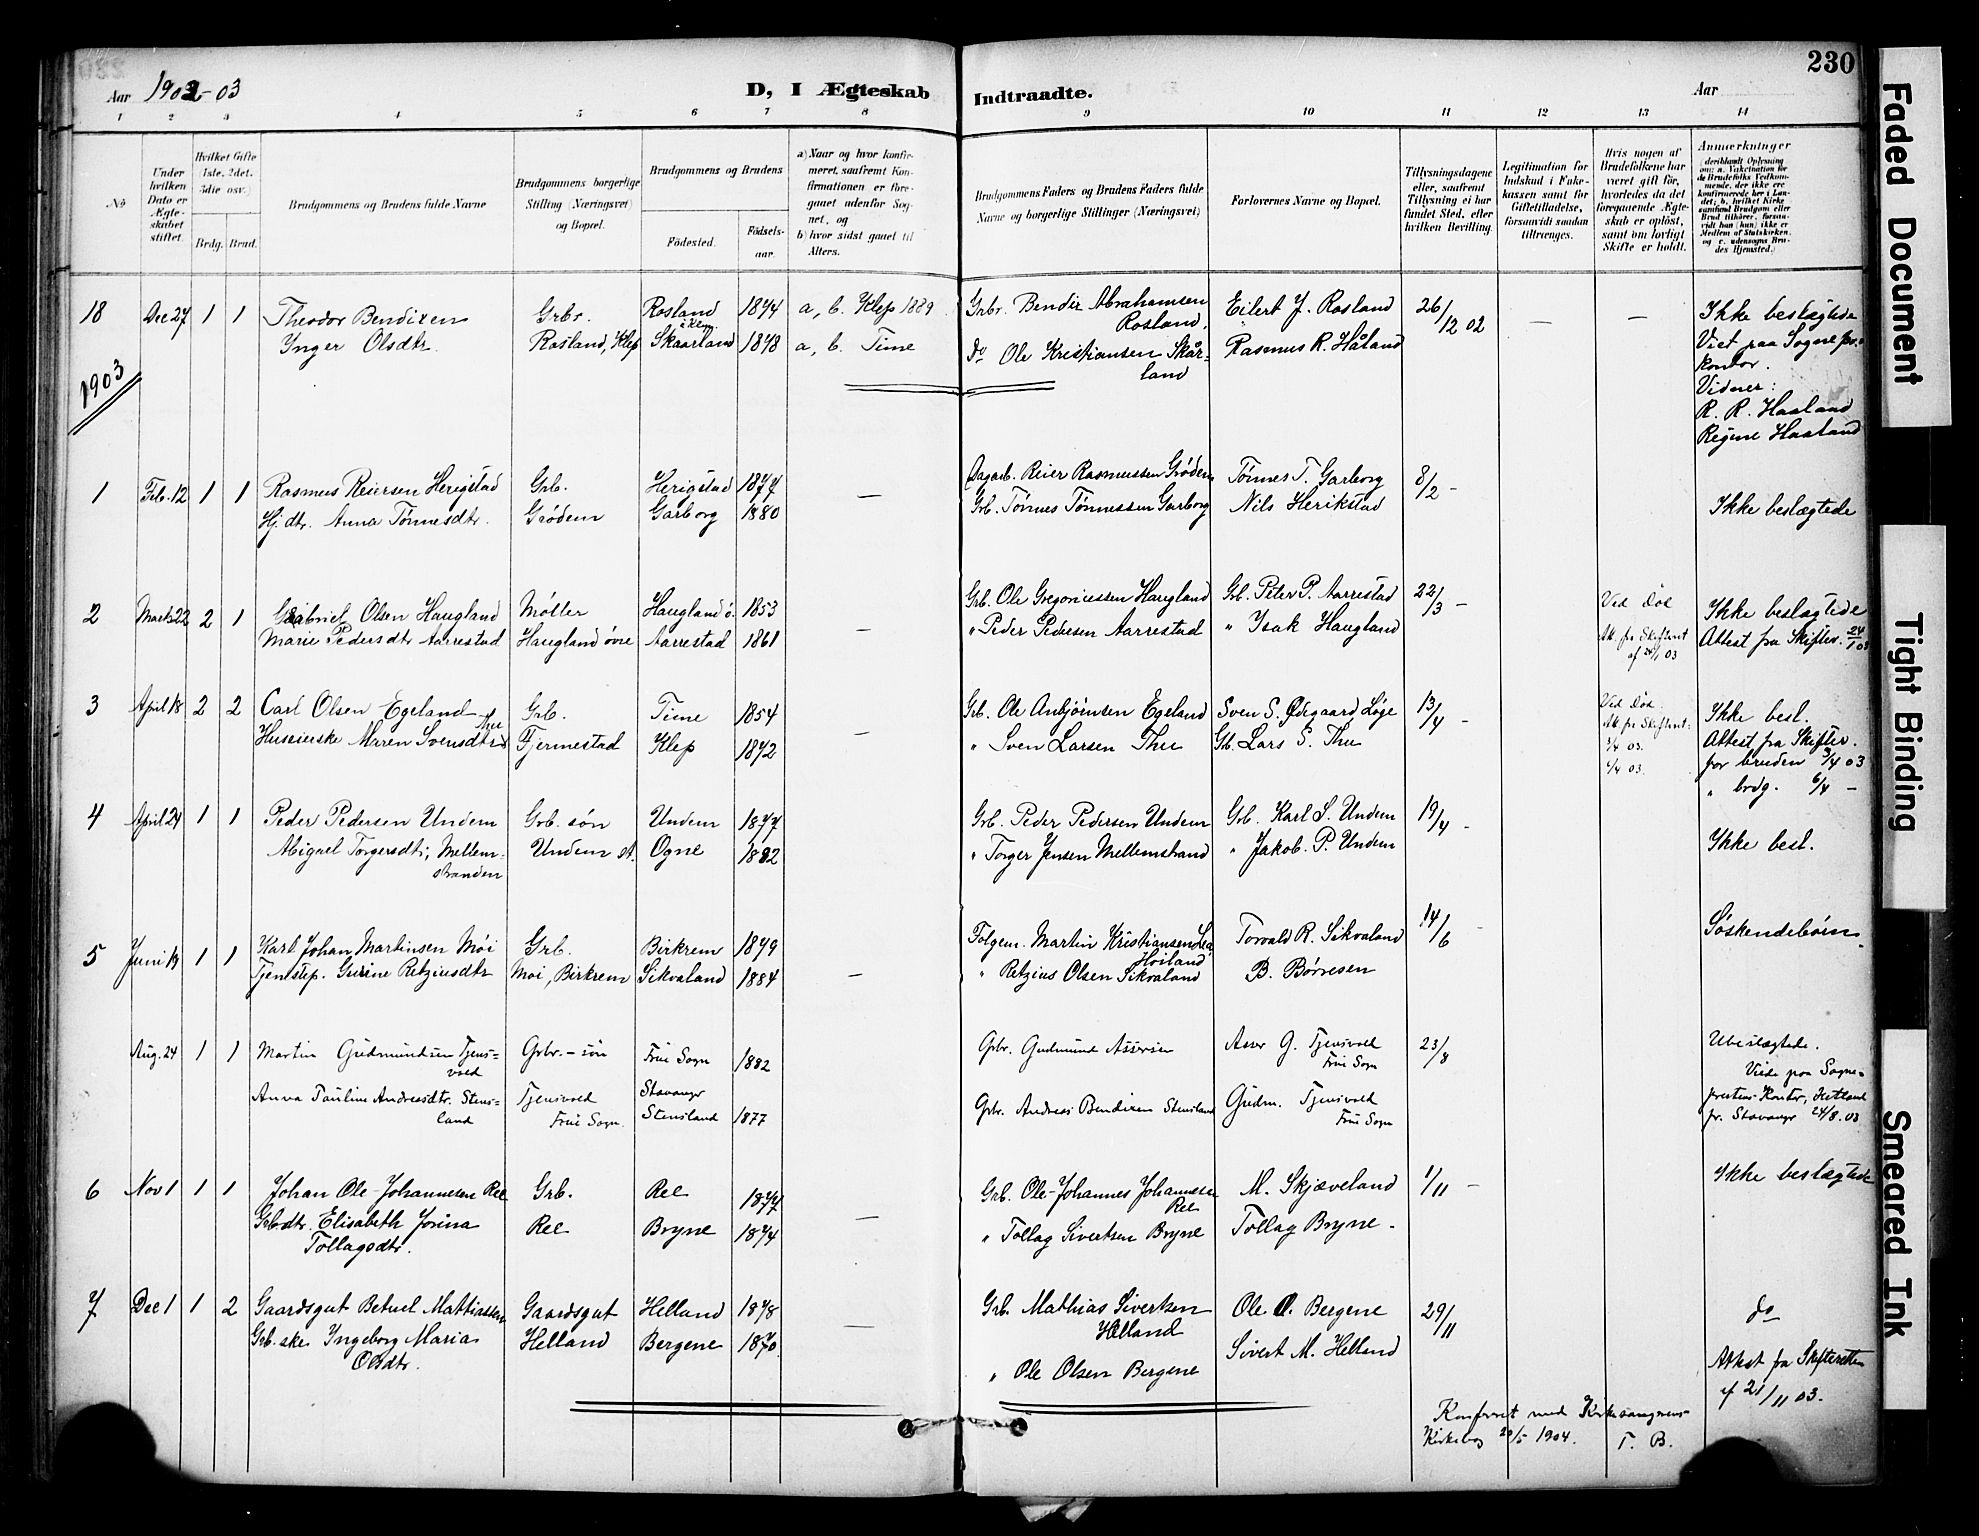 230
Aar 1902-03
D, I Ægteskab Indtraadte.
Aar
1 2 3 4 5 6 7 8 9 10 11 12 13 14
No
Under hvilken Dato er Ægteskabet stiftet.
Hvilket Gifte (1ste, 2det, 3die osv.)
Brdg. Brud.
Brudgommens og Brudens fulde Navne
Brudgommens borgerlige Stilling (Næringsvei) og Bopæl.
Brudgommens og Brudens
Fødested.
Fødselsaar.
a) Naar og hvor konfirmeret, saafremt Konfirmationen er foregaaet udenfor Sognet, og
b) hvor sidst gaaet til Alters.
Brudgommens Faders og Brudens Faders fulde Navne og borgerlige Stillinger (Næringsvei)
Forlovernes Navne og Bopæl.
Tillysningsdagene eller, saafremt Tillysning ei har fundet Sted, efter hvilken Bevilling.
Legitimation for Indskud i Enkekassen samt for Giftetilladelse, forsaavidt saadan tiltrænges.
Hvis nogen af Brudefolkene har været gift før, hvorledes da det foregaaende Ægteskab er opløst, samt om lovligt Skifte er holdt.
Anmærkninger
18 Dec 27 1 1 Theodor Bendixen Grbr. Rosland i Klep 1874 a, b. Klep 1889 Grbr. Bendix Abrahamsen Rosland. Eilert J. Rosland 26/12 02 — — Ikke beslægtede
Inger Olsdtr. Rosland, Klep Skaarland 1878 a, b. Time do Ole Kristiansen Skårland Rasmus R. Håland
Viet paa Sognepr. kontor.
Vidner:
R. R. Haaland
Regine Haaland
1903
1 Feb. 12 1 1 Rasmus Reiersen Herigstad Grb. Herigstad 1877 — Dagarb. Reier Rasmussen Grødem Tønnes T. Garborg 8/2 -
Hj.dtr. Anna Tønnesdtr. Grødem Garborg 1880 Grb. Tønnes Tønnessen Garborg Nils Herikstad Ikke beslægtede
2 Marts 22 2 1 Gabriel Olsen Haugland Møller Haugland ø. 1853 Grb. Ole Gregoriussen Haugland Grb. Peter P. Aarrestad 22/3 - Ved død Ikke beslægtede
Marie Pedersdtr Aarrestad Haugland øvre Aarrestad 1861 — " Peder Pedersen Aarrestad " Isak Haugland At. fr Skifteret af 24/1 03 Attest fra Skifter. 24/1 03
3 April 18 2 2 Carl Olsen Egeland Grb. Time 1854 Grb. Ole Anbjørnsen Egeland Sven S. Ødegaard, Løge 13/4 - Ved død. Ikke besl.
Huseierske Maren Svensdtr Thu Tjermestad Klep 1872 — " Sven Larsen Thu Gb. Lars S. Thu At. fr Skifteret: 3/4 03. 6/4 03. Attest fra Skifter.
for bruden 3/4 03
" brdg. 6/4 -
4 April 24 1 1 Peder Pedersen Undem Grb. søn Undem 1877 Grb. Peder Pedersen Undem Grb. Karl S. Undem 19/4 -
Abigael Torgersdtr; Mellemstranden Undem Ogne 1882 " Torger Jensen Mellemstrand " Jakob. P. Undem Ikke besl.
5 Juni 19 1 1 Karl Johan Martinsen Moi Grb. Birkrem 1879 Folgem. Martin Kristiansen Høiland Torvald R. Sikvaland 14/6 - Søskendebørn.
Tjenstep. Gurine Retziusdtr Moi, Birkrem Sikvaland 1884 — " Retzius Olsen Sikvaland B. Børresen
Aug. 24 1 1 Martin Gudmundsen Tjensvold Grbr.-søn Frue Sogn Stavanger 1882 Grbr. Gudmund Assersen Asser G. Tjensvold Frue Sogn 23/8 Ubeslægtede.
Anna Pauline Andreasdtr. Stensland Tjensvold Frue Sogn. Stensland 1877 Grbr. Andreas Bendixen Stensland Gudm. Tjensvold Frue Sogn
Viede paa Sogneprestens Kontor, Hetland pr. Stavanger 24/8. 03
6 Nov 1 1 1 Johan Ole-Johannesen Ree Grb. Ree 1877 Grb. Ole-Johannes Johannesen Ree M. Skjæveland 1/11 - Ikke beslægtede
Grbdtr. Elisabeth Jorina Tollagsdtr. Ree Bryne 1874 — " Tollag Sivertsen Bryne Tollag Bryne.
7 Dec 1 1 2 Gaardsgut Betuel Mathiassen Gaardsgut Helland 1878 Grb. Mathias Sivertsen Helland Ole O. Bergene 29/11 do
Grb.ske Ingeborg Maria Olsdtr. Helland Bergene 1870. — " Ole Olsen Bergene Sivert M. Helland
Attest fra Skifteretten af 21/11 03.
Konferert med Kirkesangerens Kirkebog 20/5 1904. T. B.
Faded Document
Tight Binding
Smeared Ink